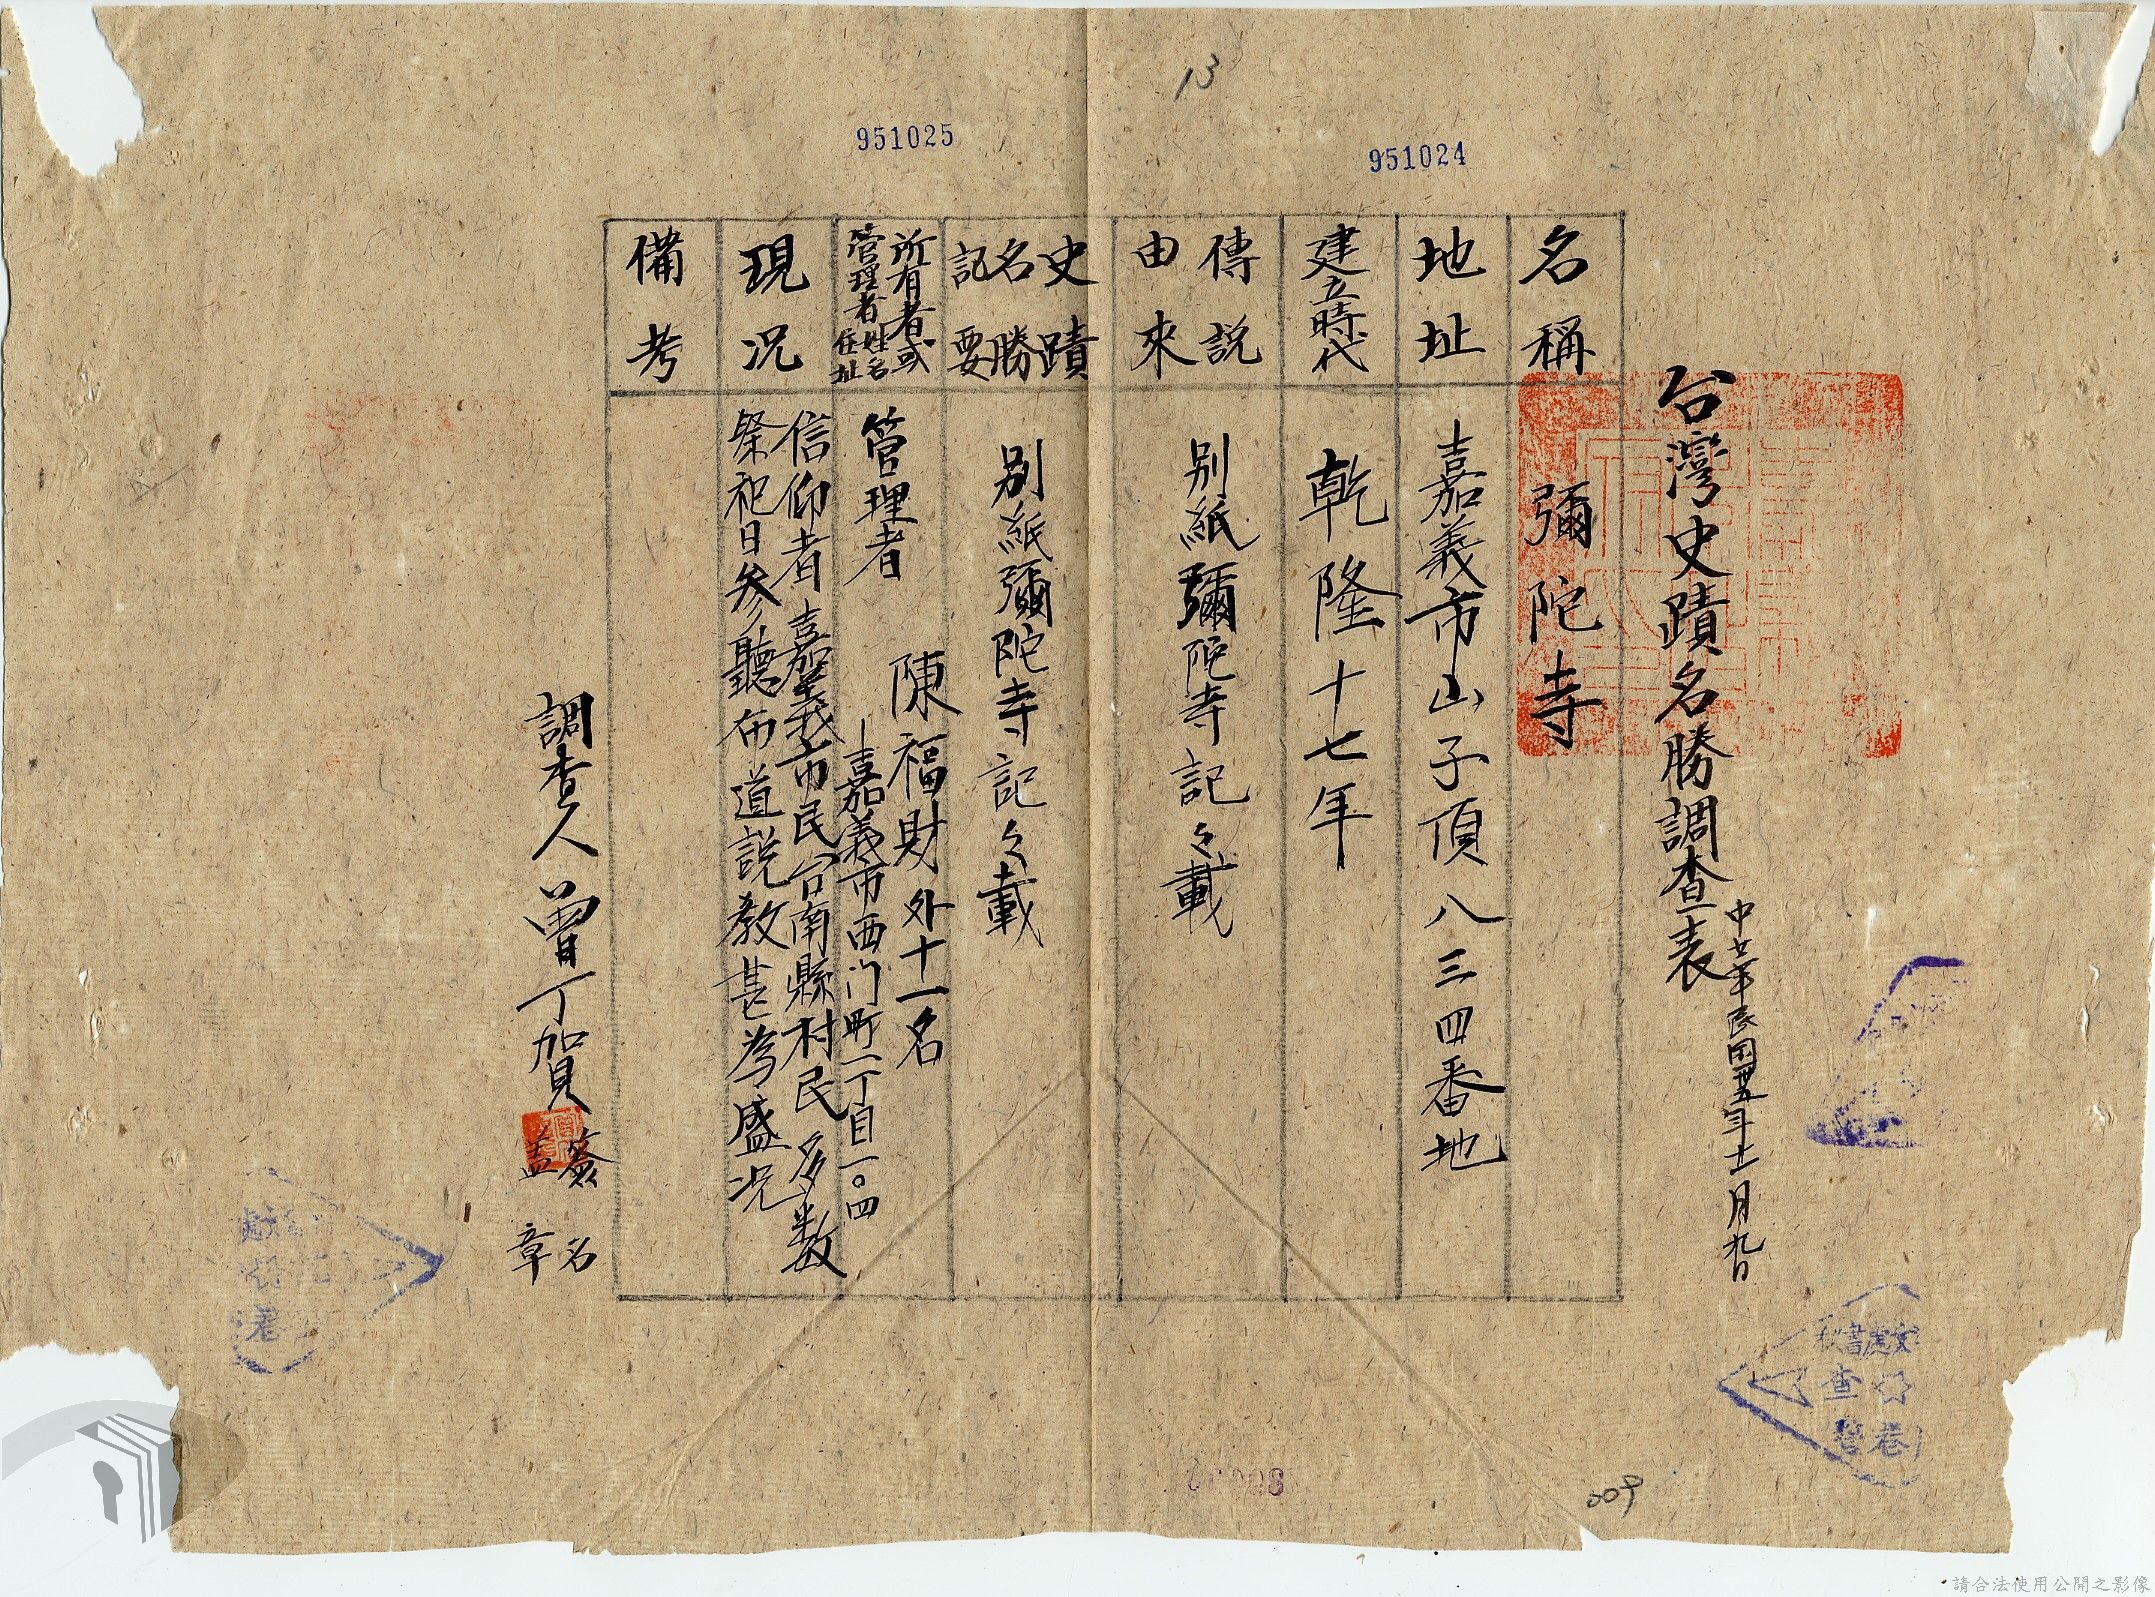 13
951025
951024
台灣史蹟名勝調查表
中華民国卅五年十一月九日
名稱
彌陀寺
地址
嘉義市山子頂八三四番地
建立時代
乾隆十七年
傳説
由來
别紙彌陀寺記之載
史蹟
名勝
記要
别紙彌陀寺記之載
所有者或
管理者姓名
住址
管理者
陳福財外十一名
嘉義市西门町一丁目一〇四
現況
信仰者嘉義市民台南縣村民多数
祭祀日参聽布道説教甚為盛況
備考
調查人 曾丁賀
簽名
盖章
查
卷
卷
009
請合法使用公開之影像